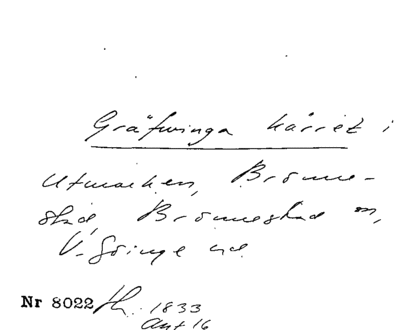 Gräfwinga kärret i
Utmarken, Brönne-
stad, Brönnestad sn,
V. Göinge hd
Nr 8022 1833
Akt 16